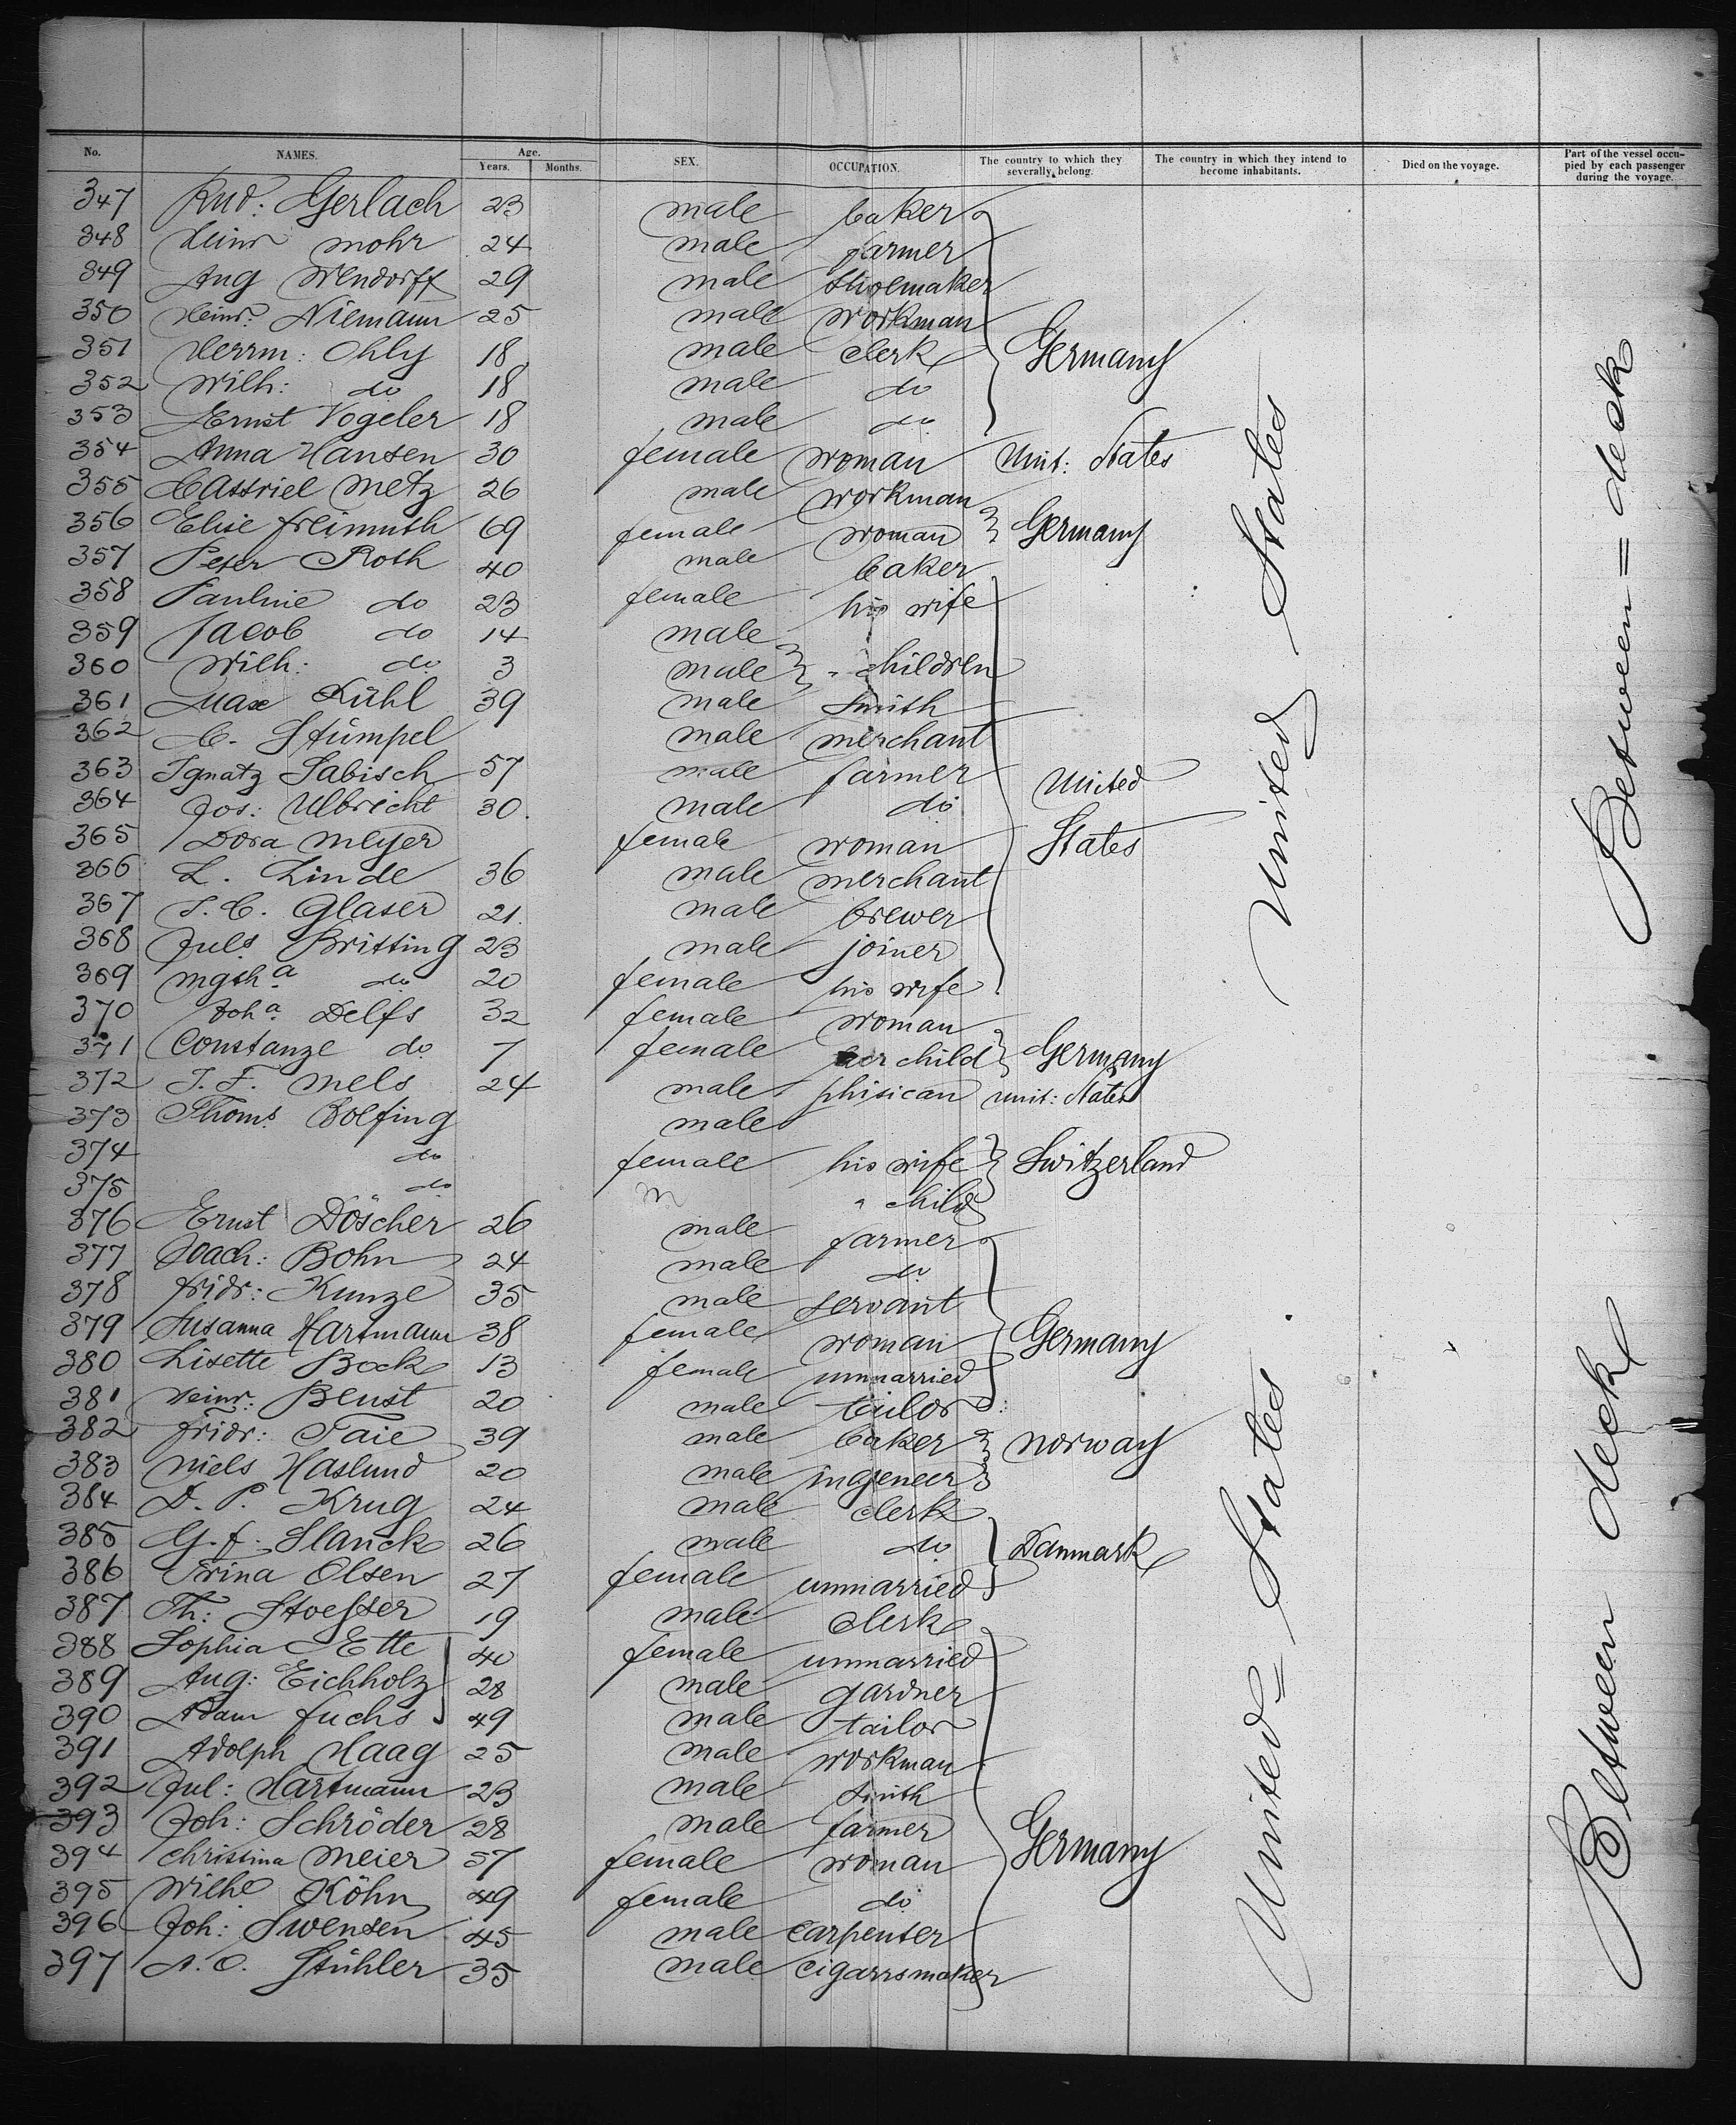 No. NAMES. Age. Years. Months. SEX. OCCUPATION. The country to which they severally belong. The country in which they intend to become inhabitants. Died on the voyage. Part of the vessel occupied by each passenger during the voyage.
347 Rud: Gerlach 23 male baker
348 Heinr mohr 24 male farmer
349 Aug Wendorff 29 male Shoemaker
350 Heinr: Niemann 25 male workman
351 Herrm: Ohly 18 male clerk Germany
352 Wilh: do 18 male do
353 Ernst Vogeler 18 male do
354 Anna Hansen 30 female woman Unit: States
355 Cassriel Metz 26 male workman
356 Elise Freimuth 69 female woman Germany
357 Peter Roth 40 male baker
358 Pauline do 23 female his wife
359 Jacob do 14 male
360 Wilh: do 3 male " children
361 Max Kühl 39 male Smith
362 C. Stümpel male merchant
363 Ignatz Sabisch 57 male farmer United
364 Jos: Ulbricht 30. male do
365 Dora Meyer female woman States
366 L. Linde 36 male merchant
367 J. C. Glaser 21. male brewer
368 Juls Britting 23 male joiner
369 Mgtha do 20 female his wife
370 Joha Delfs 32 female woman
371 Constanze do 7 female her child Germany
372 J. F. Mels 24 male phisican unit: States
373 Thoms Bolfing male
374 do female his wife Switzerland
375 do m " child
376 Ernst Döscher 26 male farmer
377 Joach: Bohn 24 male do
378 Fridr: Kunze 35 male servant
379 Susanna Hartmann 38 female woman Germany
380 Lisette Bock 13 female unmarried
381 Heinr: Beust 20 male tailor
382 Fridr: Taie 39 male baker Norway
383 Niels Haslund 20 male ingeneer
384 D. P. Krug 24 male clerk
385 G. F. Slanck 26 male do Danmark
386 Trina Olsen 27 female unmarried
387 Th: Stoesser 19 male clerk
388 Sophia Ette 40 female unmarried
389 Aug: Eichholz 28 male gardner
390 Adam Fuchs 49 male tailor
391 Adolph Haag 25 male workman
392 Jul: Hartmann 23 male Smith
393 Joh: Schröder 28 male farmer
394 Christina Meier 57 female woman Germany
395 Wilhe Köhn 49 female do
396 Joh: Swensen 45 male carpenter
397 A. O. Stühler 35 male cigarrsmaker
United States
United = States
Between = deck
Between deck